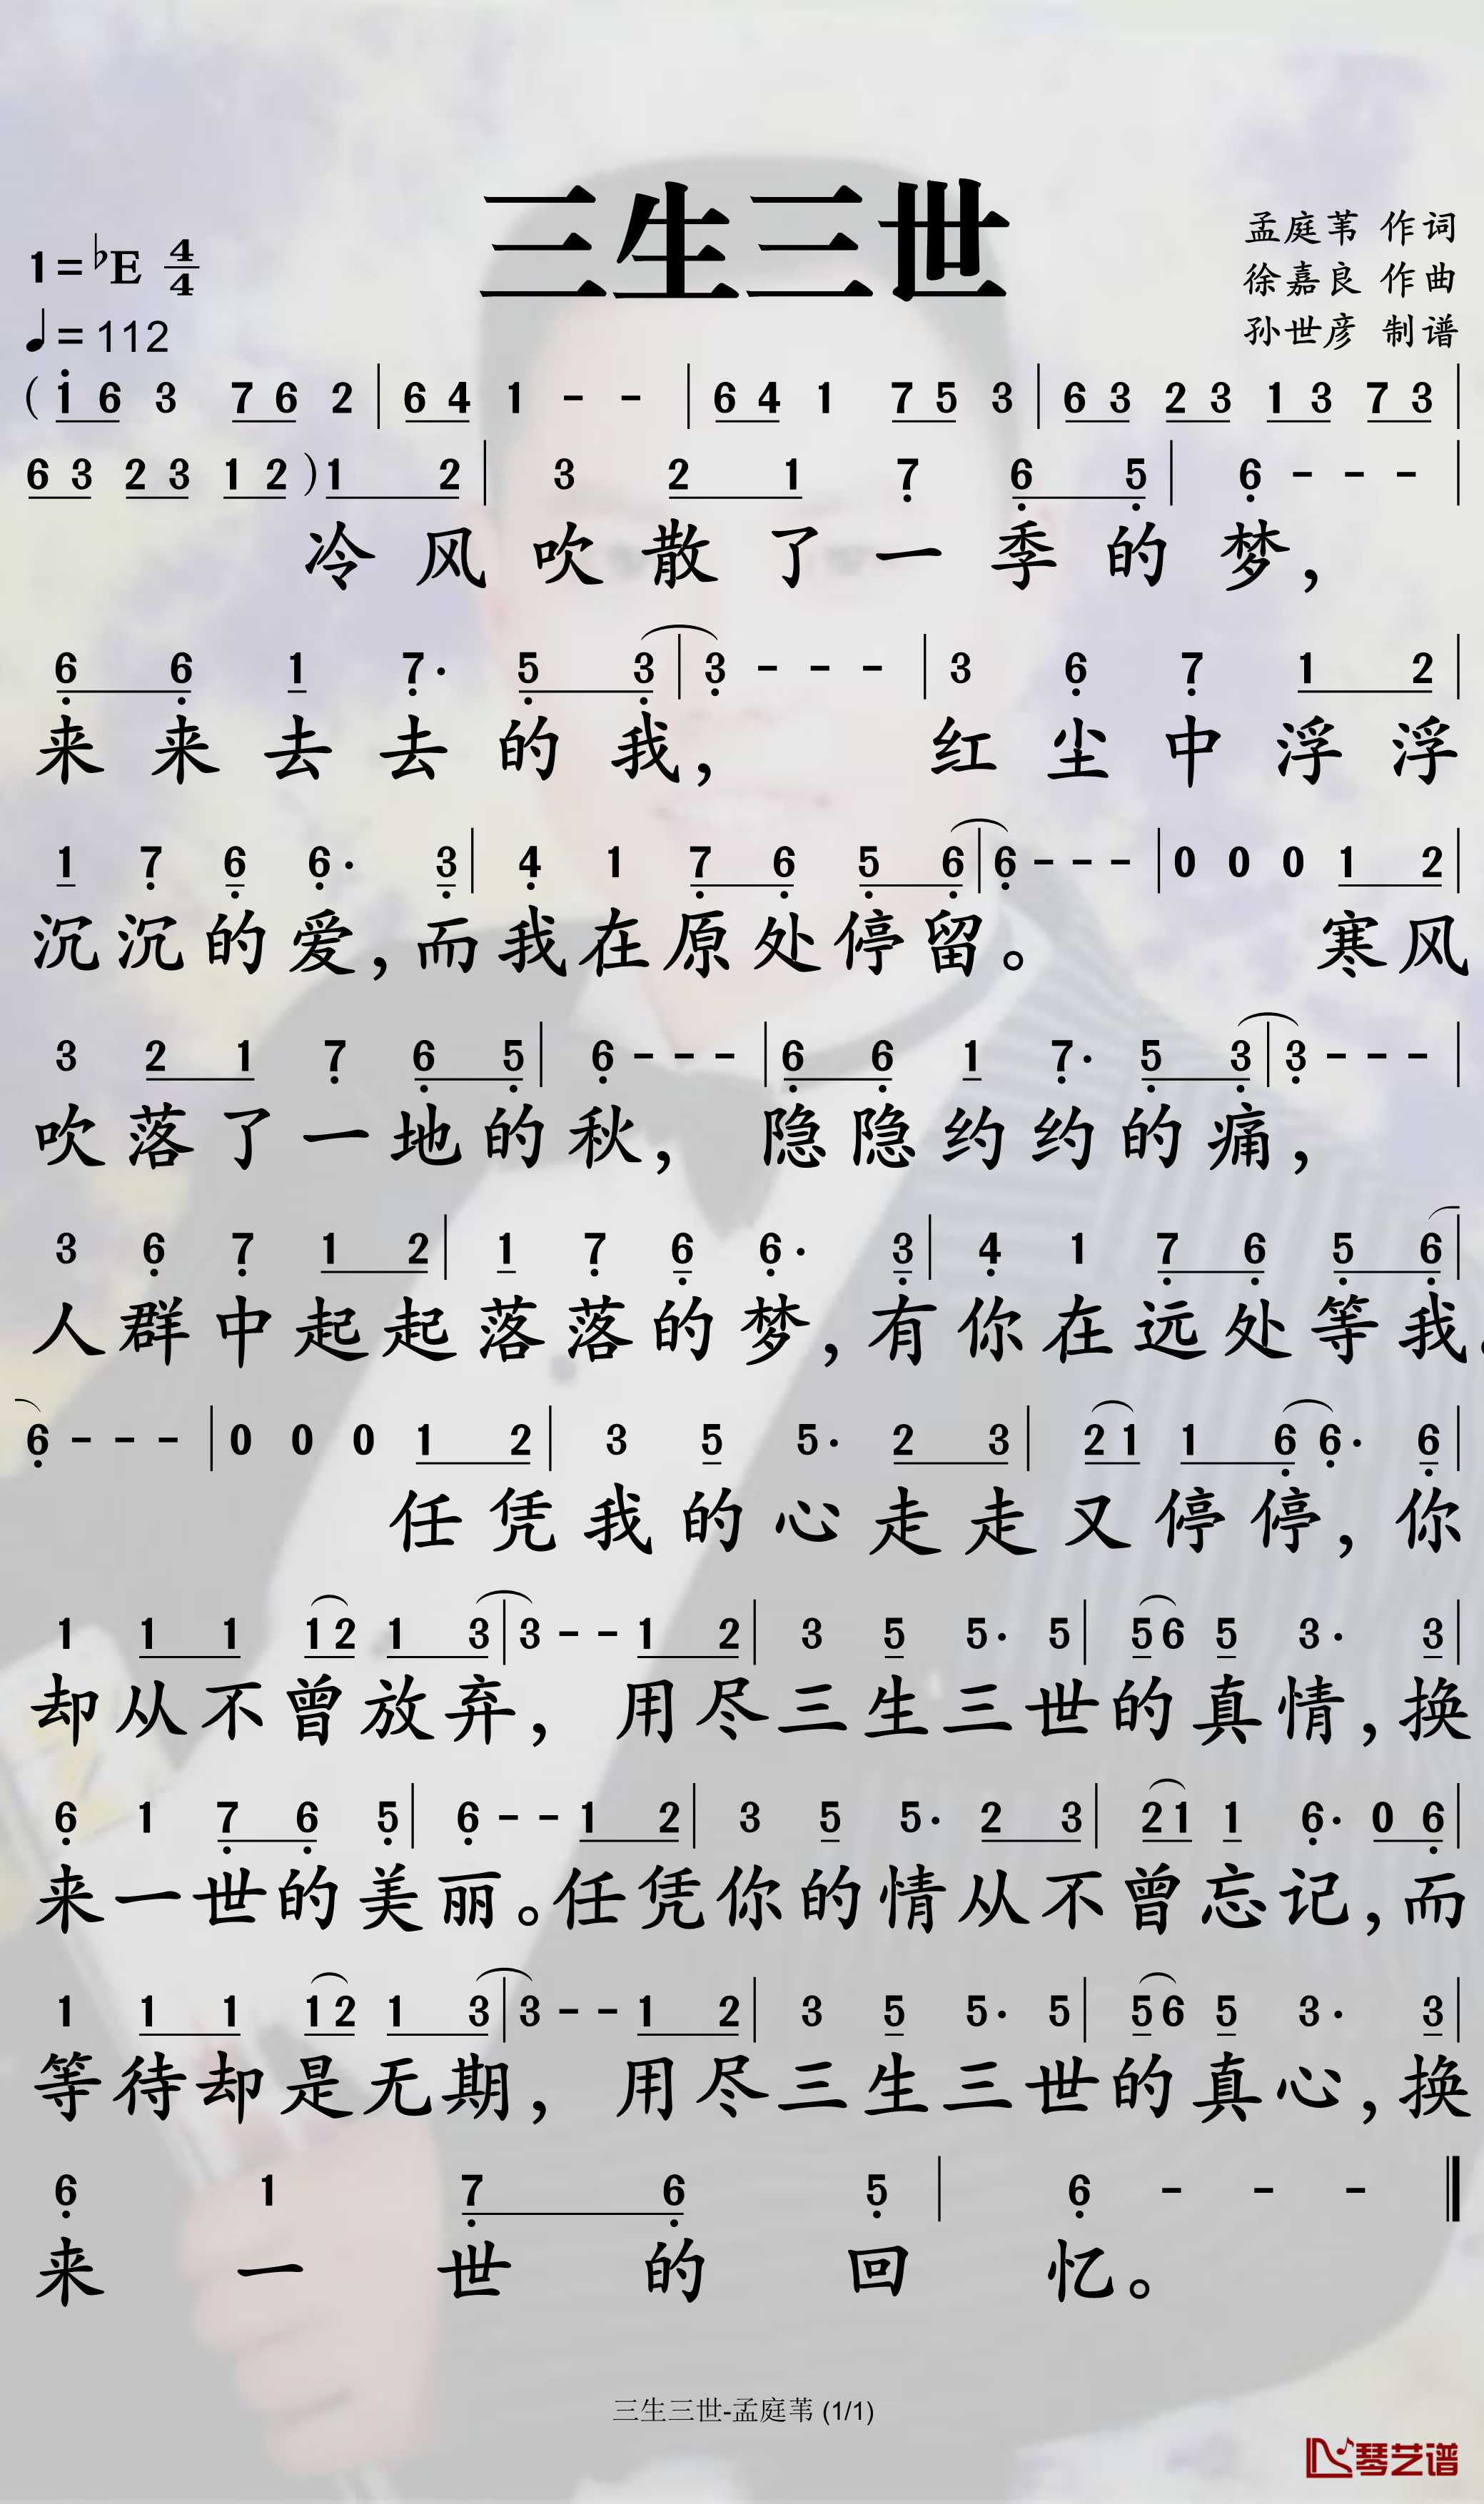 三生三世
1=♭E 4/4
♩=112
孟庭苇 作词
徐嘉良 作曲
孙世彦 制谱
(i 6 3 7 6 2 | 6 4 1 - - | 6 4 1 7 5 3 | 6 3 2 3 1 3 7 3 |
6 3 2 3 1 2 ) 1 2 | 3 2 1 7 6 5 | 6 - - - |
冷风吹散了一季的梦，
6 6 1 7· 5 3 | 3 - - - | 3 6 7 1 2 |
来来去去的我， 红尘中浮浮
1 7 6 6· 3 | 4 1 7 6 5 6 | 6 - - - | 0 0 0 1 2 |
沉沉的爱，而我在原处停留。 寒风
3 2 1 7 6 5 | 6 - - - | 6 6 1 7· 5 3 | 3 - - - |
吹落了一地的秋， 隐隐约约的痛，
3 6 7 1 2 | 1 7 6 6· 3 | 4 1 7 6 5 6 |
人群中起起落落的梦，有你在远处等我。
6 - - - | 0 0 0 1 2 | 3 5 5· 2 3 | 2 1 1 6 6· 6 |
任凭我的心走走又停停，你
1 1 1 1 2 1 3 | 3 - - 1 2 | 3 5 5· 5 | 5 6 5 3· 3 |
却从不曾放弃， 用尽三生三世的真情，换
6 1 7 6 5 | 6 - - 1 2 | 3 5 5· 2 3 | 2 1 1 6· 0 6 |
来一世的美丽。任凭你的情从不曾忘记，而
1 1 1 1 2 1 3 | 3 - - 1 2 | 3 5 5· 5 | 5 6 5 3· 3 |
等待却是无期， 用尽三生三世的真心，换
6 1 7 6 5 | 6 - - - ‖
来一世的回忆。
三生三世-孟庭苇 (1/1)
琴艺谱